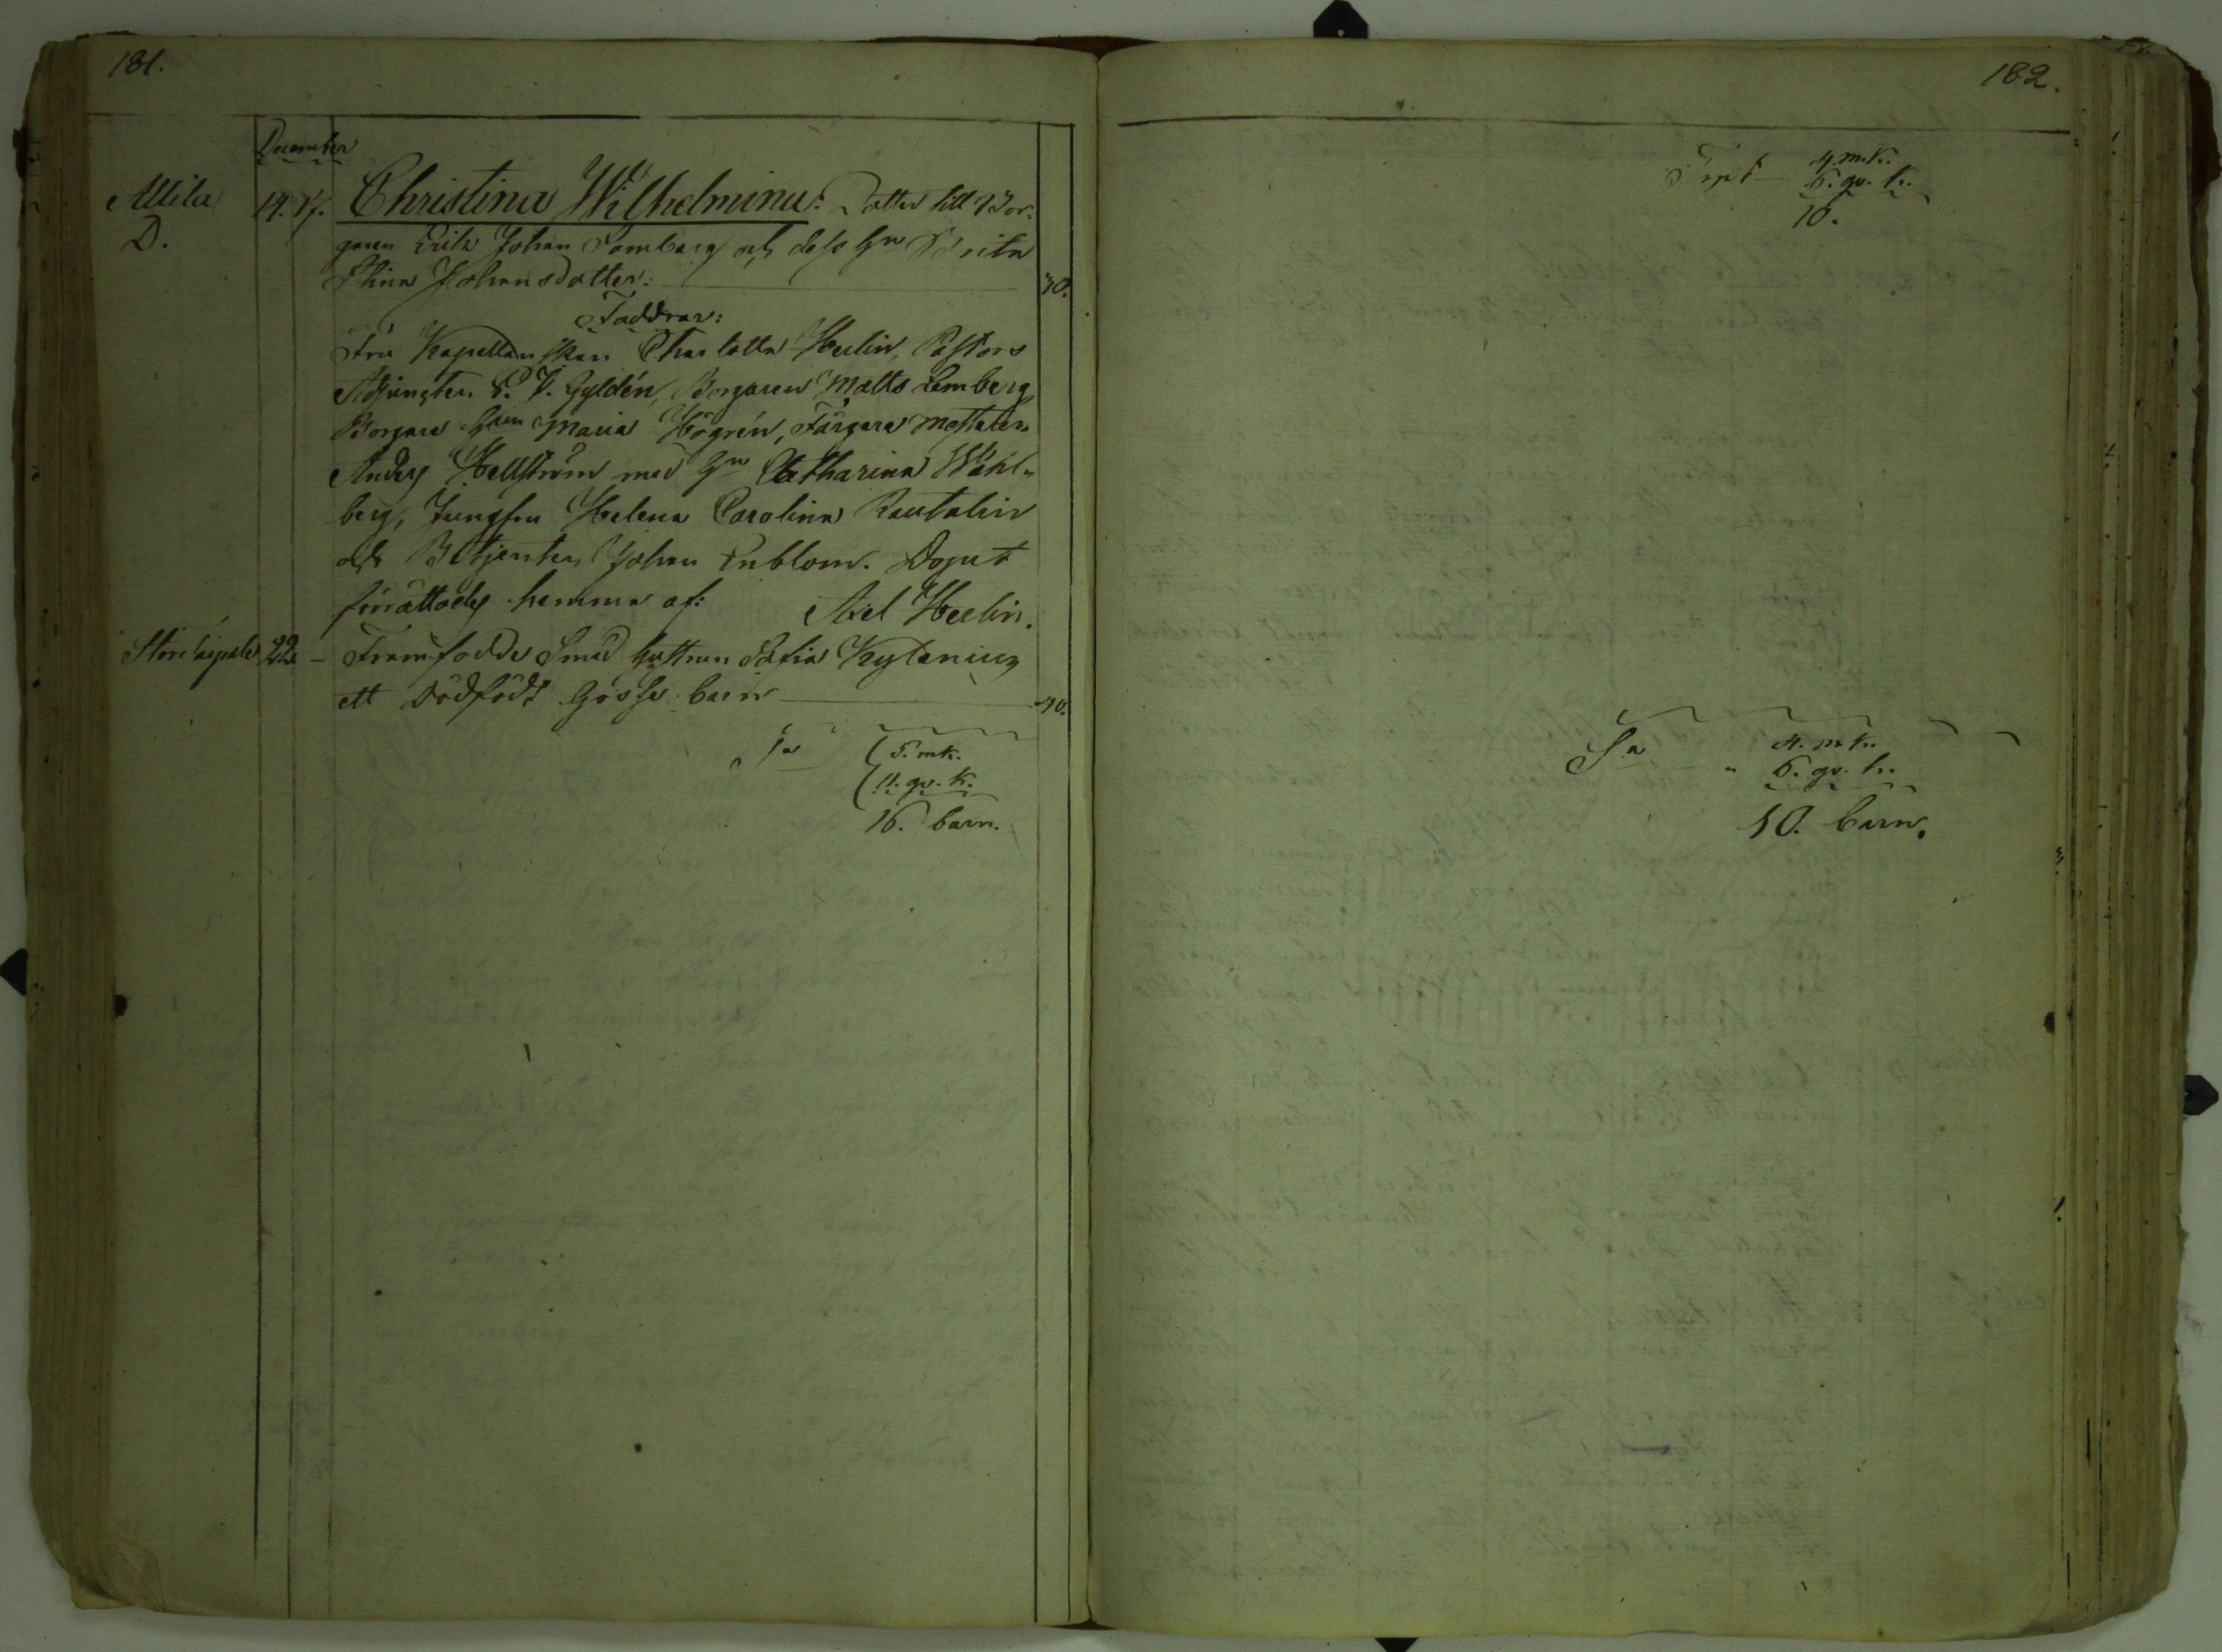 181.
December
Attila 14. 17. Christina Wilhelmina: Dotter till Bor-
D. garen Erik Johan Lemberg och dess Hu Brita
Stina Johansdotter: 30.
Faddrar:
Fru Kapellanskan Charlotta Heelin, Pastors
Adjuncten P. J. Gyldén, Borgaren Matts Lemberg,
Borgare Hun Maria Högrén, Färgare Mästaren
Anders Hellström med Hu Catharina Wåhl-
berg, Jungfru Helena Carolina Rautalin
och Betjenten Johan Enblom. Doput
förrättades hemma af: Axel Heelin.
Storie 22. – Framfödde Smed Hustrun Sofia Kylenius
ett Dödfödt Gosse barn 40.
Sa 5. mk.
11. qv. k.
16. barn.
182.
Trpt 4. m.k.
6. qv. k.
10.
Sa 4. m.k.
6. qv. k.
10. barn.